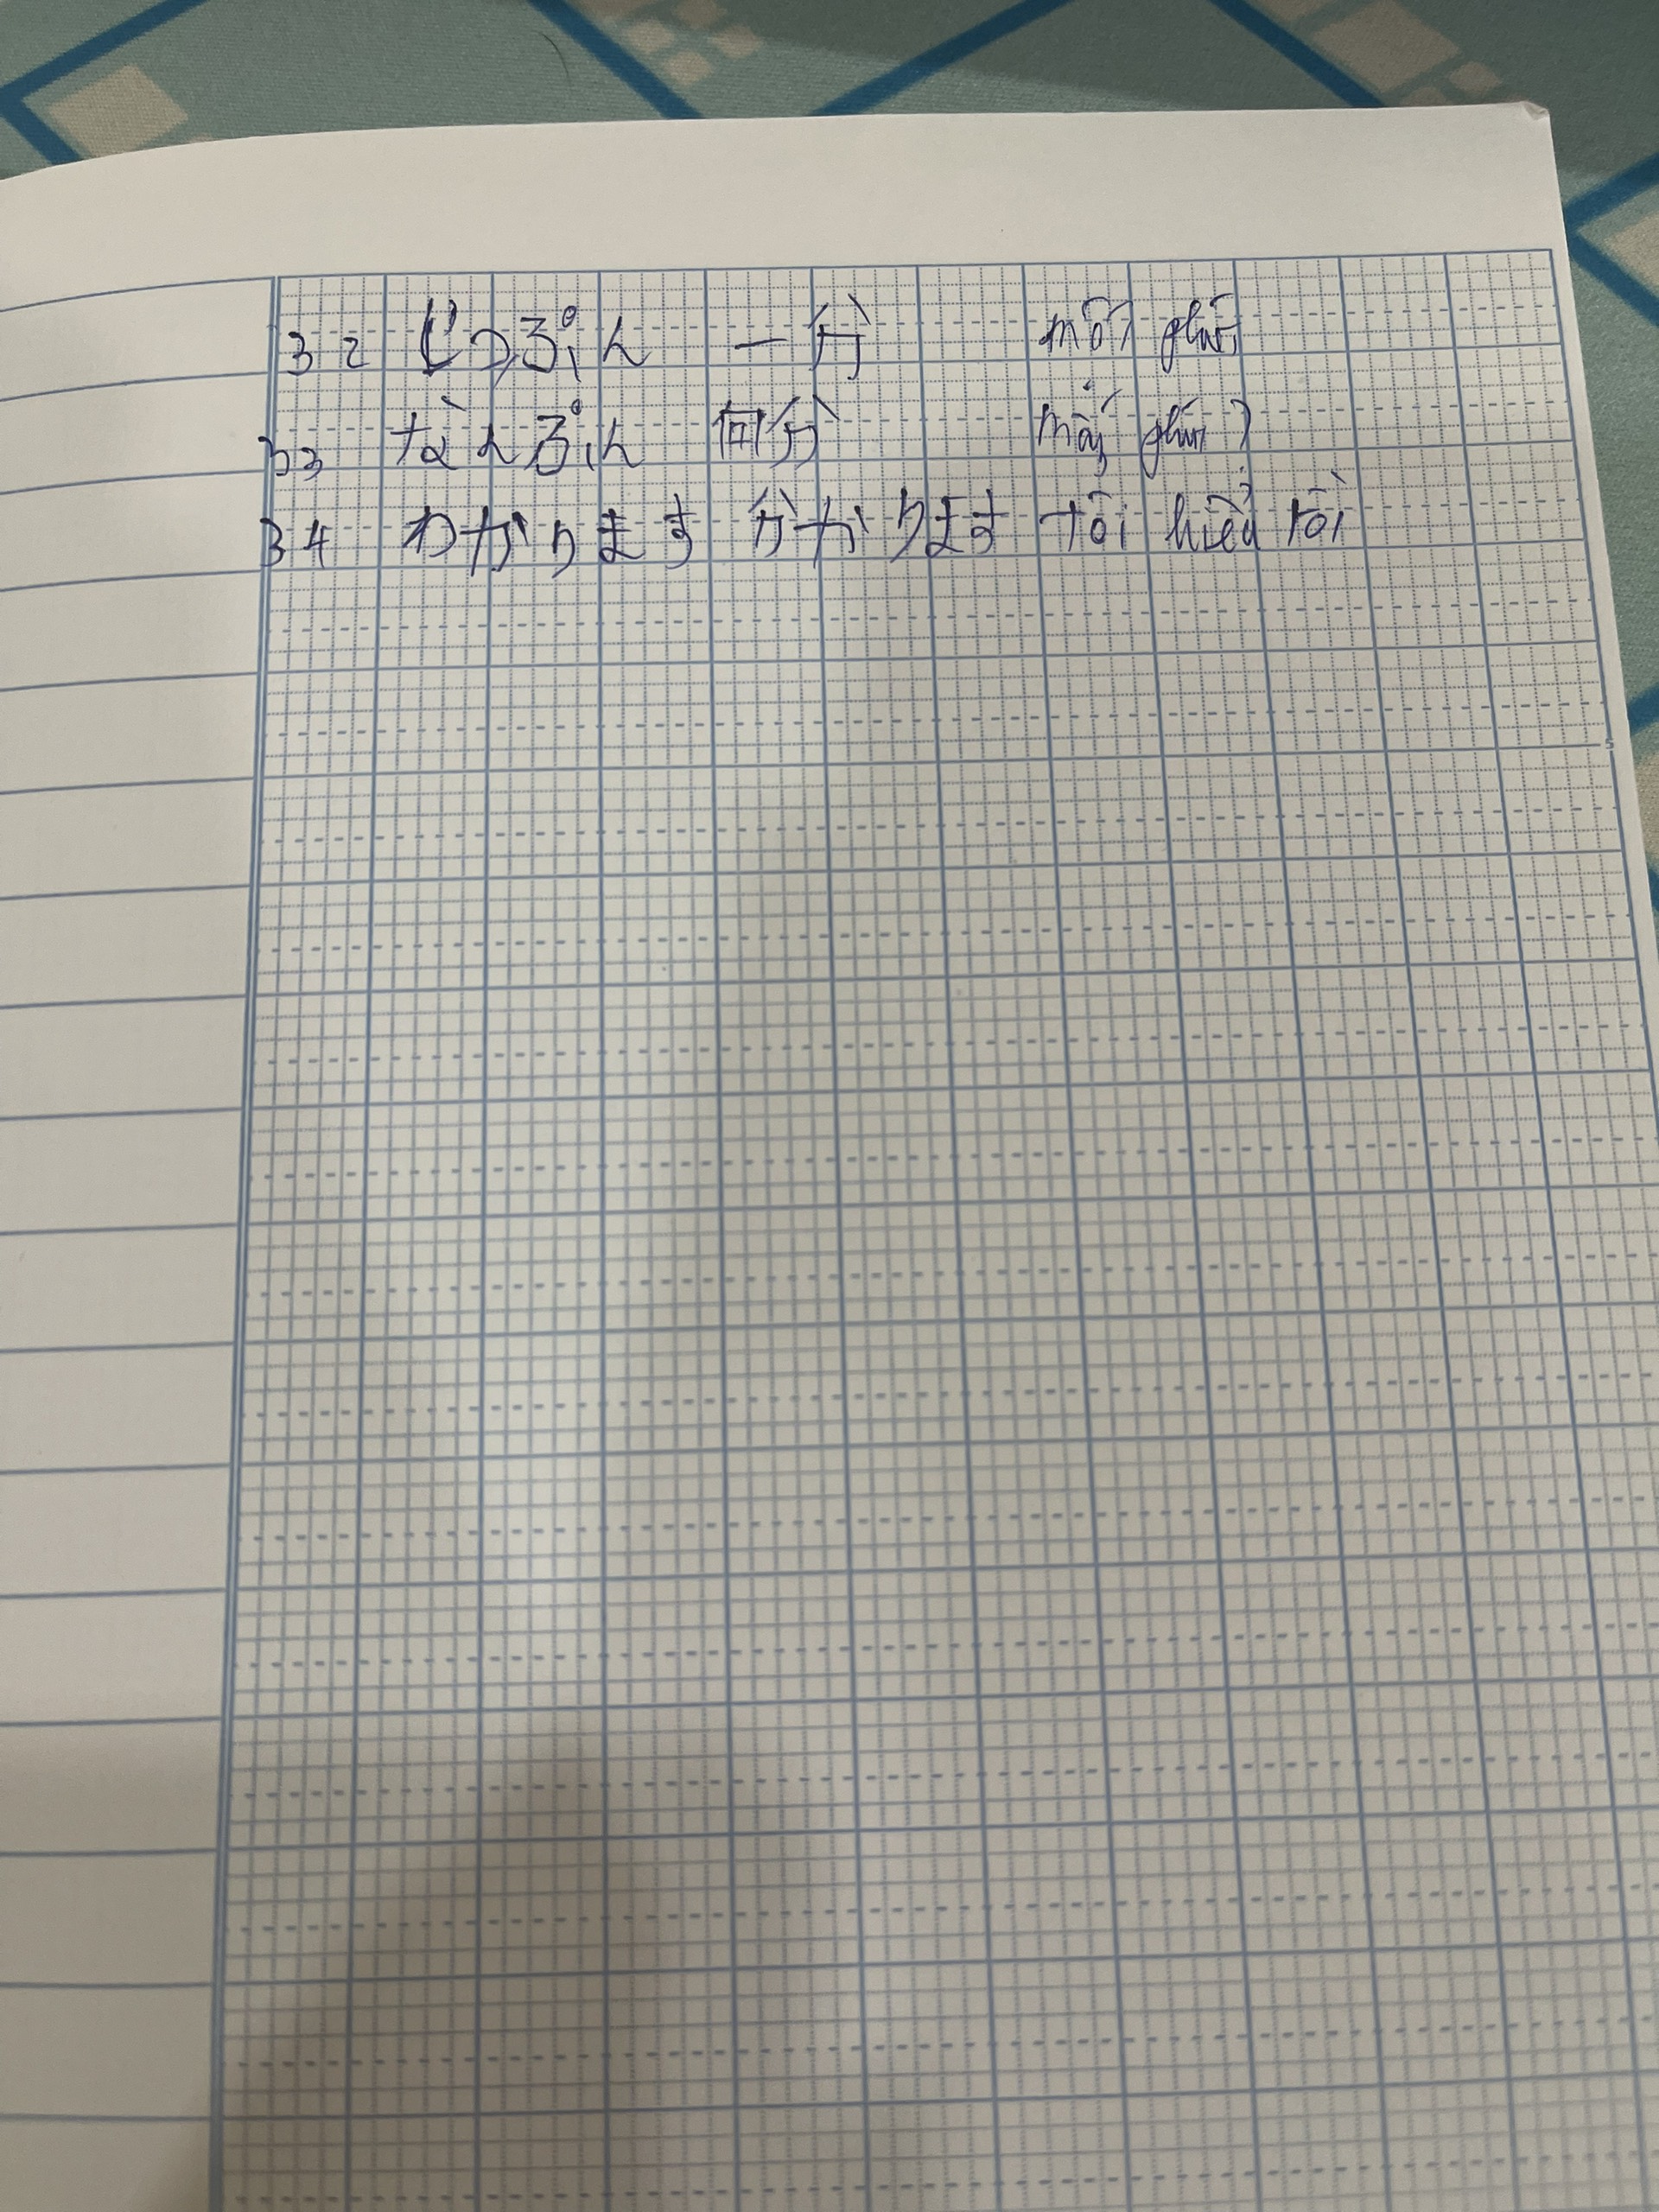 32 じっぷん 一分 mười phút
33 なんぷん 何分 mấy phút?
34 わかります 分かります tôi hiểu rồi
5